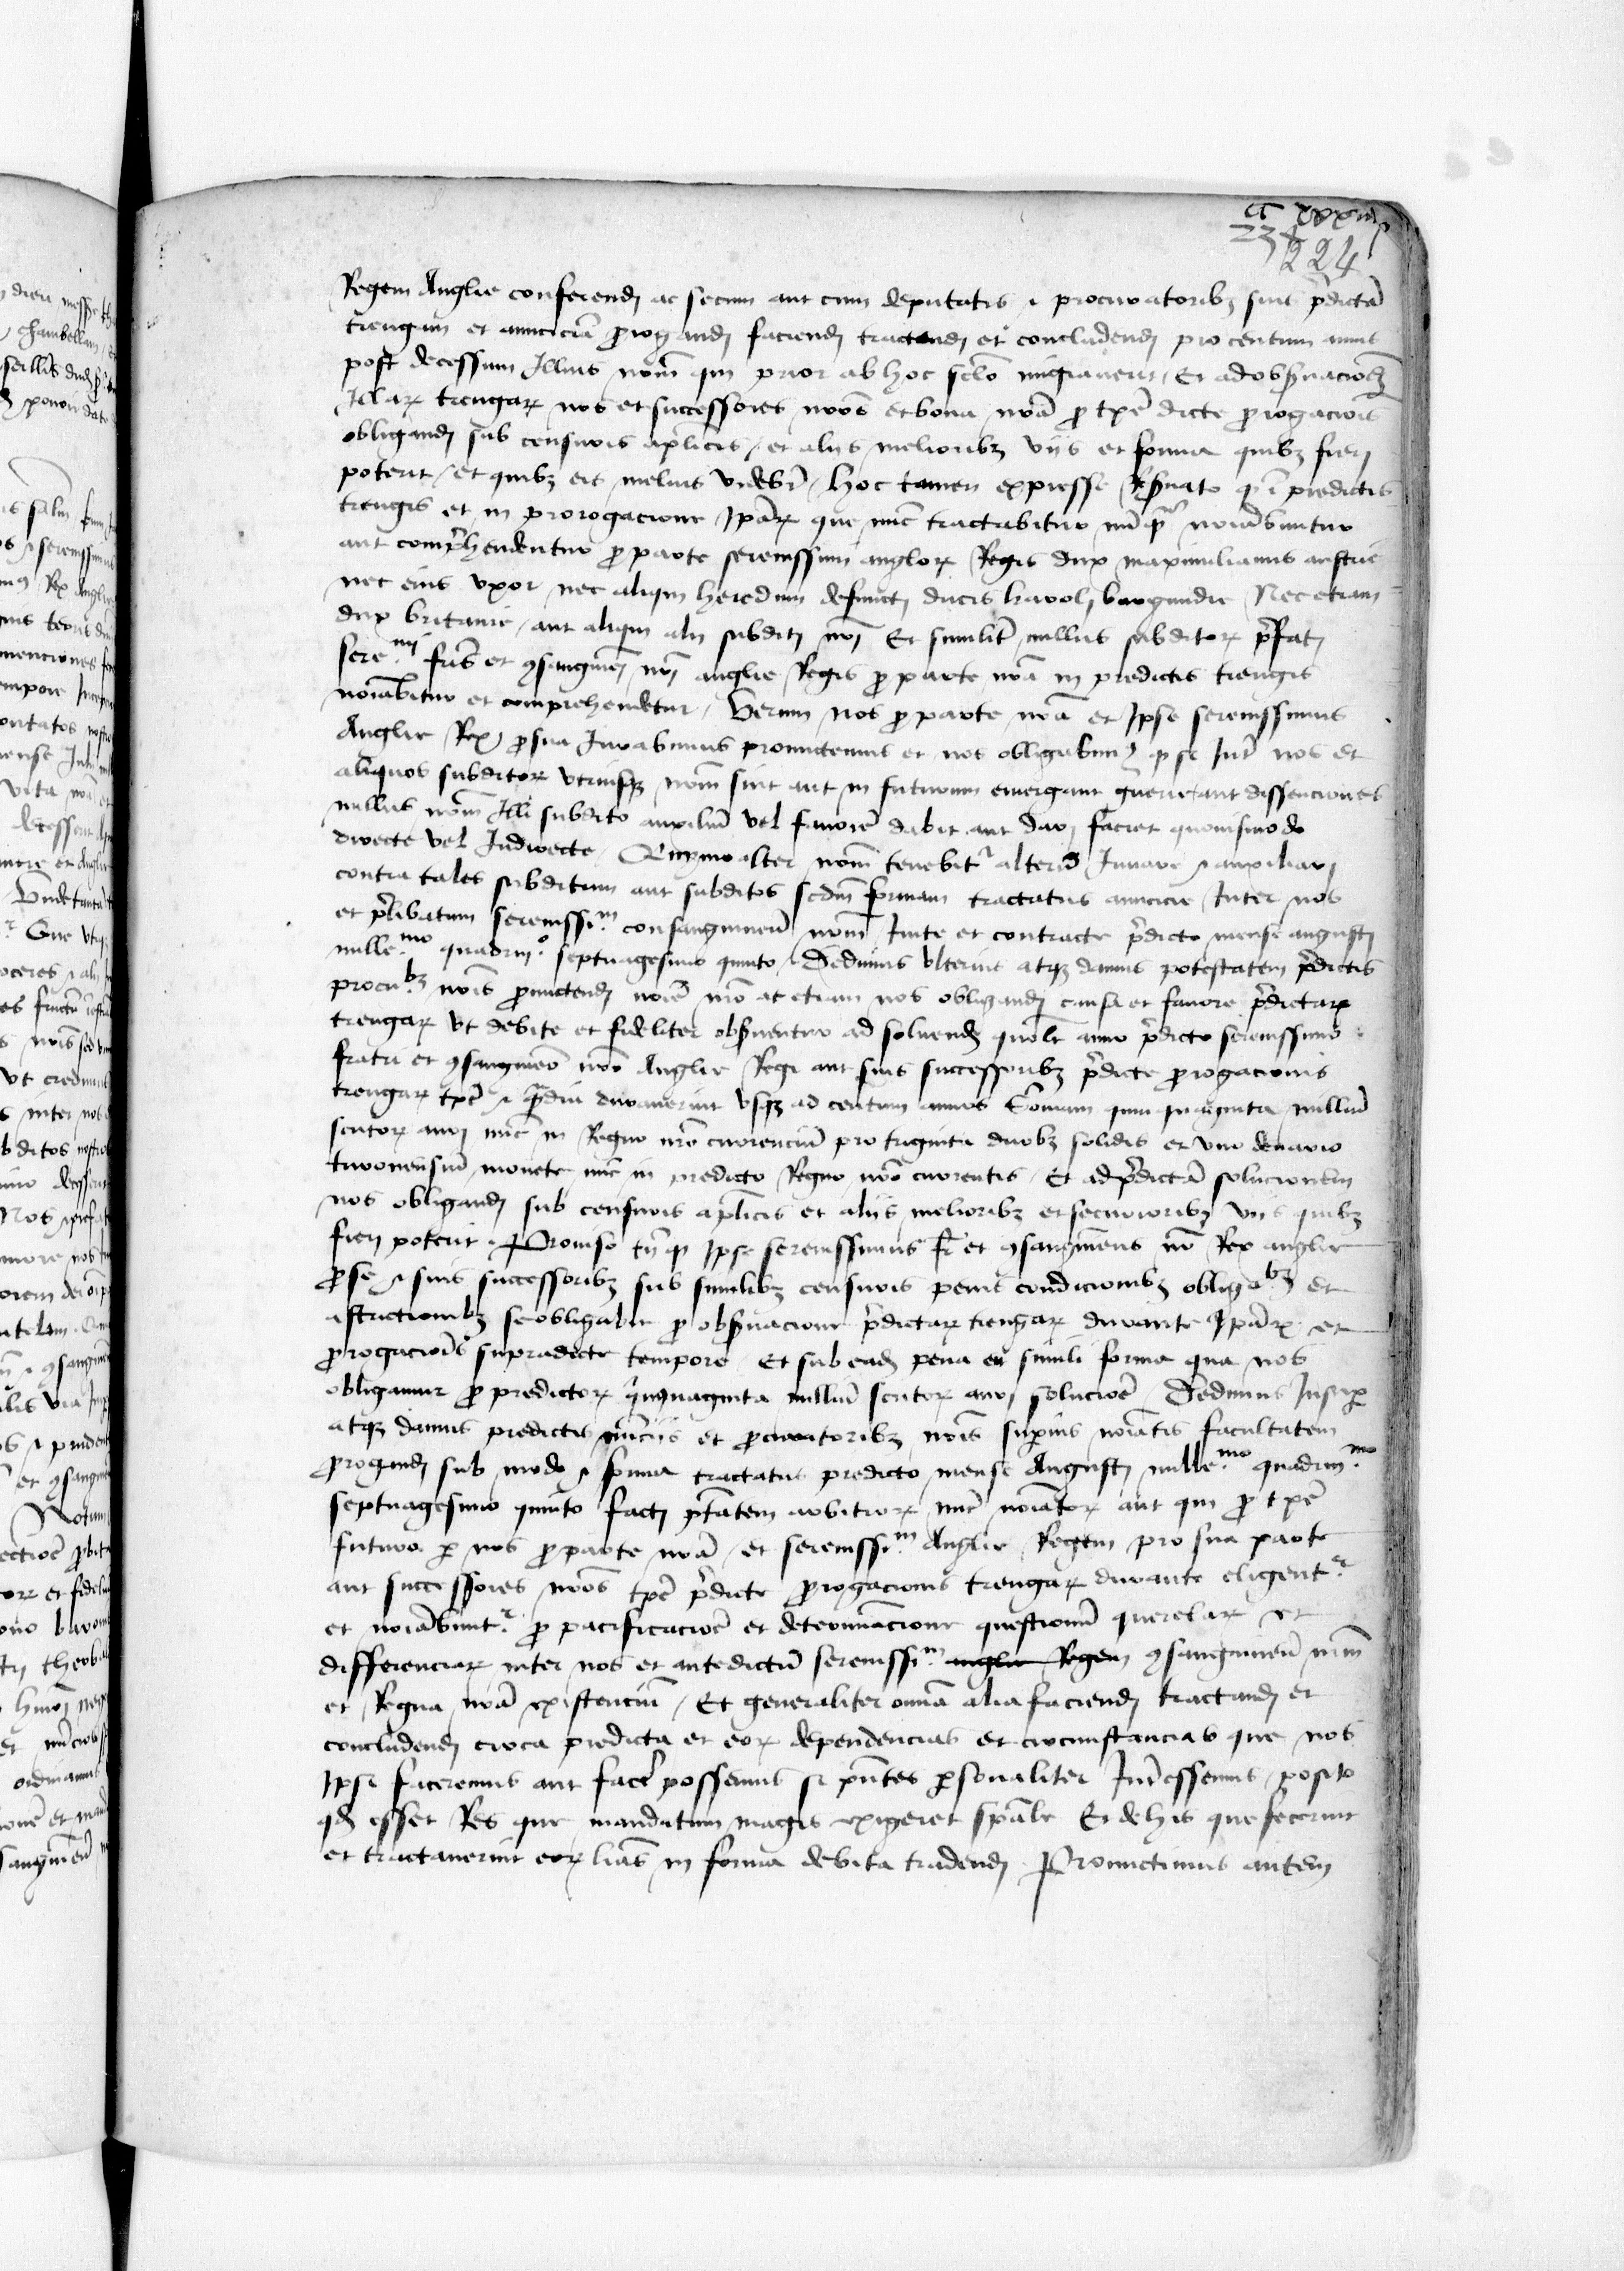 a xxxiij
234
224
Regem Anglie conferendj ac secum aut cum deputatis & procuratoribz suis p̄dictā
treugam et amiciciā prorogandj faciendj tractandj et concludendj pro centum annis
post decessum Illius nr̄m qui prior ab hoc sclo migrauerit / Et ad obs̄uacioēz
Illaꝝ treugaꝝ nos et successores nr̄os et bona nr̄a pro tpe dicte prorogaciois
obligandj sub censuris aplicis / et alijs melioribz vijs et forma quibz fierj
poterit / et quibz eis melius videbr̄ / hoc tamen expresse res̄uato q̄ ī predictis
treugis et in prorogacione Ipaꝝ que nūc tractabitur nūq̄ noiabuntur
aut comp̄hendentur pro parte serenissimi angloꝝ Regis dux maximilianus austrie
nec eius vxor nec aliqui heredum defunctj ducis karolj burgundie / Nec etiam
dux britanie / aut aliqui alij subditj nr̄j Et similit̄ nullus subditoꝝ p̄fatj
sere.mj fr̄is et ꝯsanguinei nr̄j anglie Regis pro parte nr̄a in predictis treugis
noiabitur et comprehendetur / Verum nos pro parte nr̄a et Ipse serenissimus
Anglie Rex pro sua Iurabimus promittemus et nos obligabimꝰ q̄ se Int̄ nos et
aliquos subditoꝝ vtriusqz nr̄m sint aut in futurum emergant guerre aut dissenciones
nullus nr̄m Illi subdito auxiliū vel fauorē dabit aut darj faciet quouismodo
directe vel Indirecte / Quymo alter nr̄m tenebit̄ alterū Iuuare & auxiliarj
contra tales subditum aut subditos scdm formam tractatus amicicie / Inter nos
et p̄libatum serenissi.m consanguineū nr̄m Inite et contracte p̄dicto mense augustj
mille.mo quadrin.o septuagesimo quinto / Dedimus vlterius atqz damus potestatem p̄dictis
procu.bz nr̄is promittendj noīe nr̄o ac etiam nos obligandj causa et fauore p̄dictaꝝ
treugaꝝ vt debite et fideliter obs̄uentur ad soluendū quolt̄ anno p̄dicto serenissimo
fratri et ꝯsanguineo nr̄o Anglie Regi aut suis successoribz p̄dicte prorogacionis
treugaꝝ tpe & q̄diu durauerint vsqz ad centum annos Somam quinquaginta milliū
scutoꝝ aurj nūc in Regno nr̄o currenciū pro triginta duobz solidis et vno denario
turonensiū monete nūc in predicto Regno nr̄o currentis / Et ad p̄dictā solucionem
nos obligandj sub censuris aplicis et alijs melioribz et securioribz vijs quibz
fierj poterit / Prouiso tn̄ q̄ Ipse serenissimus fr̄ et ꝯsanguineus nr̄ Rex anglie
pro se & suis successoribz sub similibz censuris penis condicionibz obliga.bz et
astrictionibz se obligabit pro obs̄uacione p̄dictaꝝ treugaꝝ durante Ipaꝝ et
prorogaciois supradicte tempore / Et sub eadj pena et simili forma qua nos
obligamur pro predictoꝝ q̄nquaginta milliū scutoꝝ aurj solucioē / Dedimus Insup
atqz damus predictis nūcijs et procuratoribz nr̄is sup̄ius noiatis facultatem
prorogandj sub modo & forma tractatus predicto mense Augustj mille.mo quadrin.mo
septuagesimo quinto factj ptatem arbitroꝝ nūc noiatoꝝ aut qui pro tpe
futuro p nos pro parte nr̄a / et serenissi.m Anglie Regem pro sua parte
aut successores nr̄os tpe p̄dicte prorogacionis treugaꝝ durante eligent.r
et noiabunt.r pro pacificacioē et determinacione questionū querelaꝝ et
differenciaꝝ inter nos et antedictū serenissi.m anglie Regem ꝯsanguineū nr̄m
et Regna nr̄a existenciū / Et generaliter omnia alia faciendj tractandj et
concludendj circa predicta et eoꝝ dependencias et circumstancias que nos
Ipsi faceremus aut facē possemus si p̄ntes personaliter Int̄essemus / posito
qd esset Res que mandatum magis exigeret sp̄ale Et de his que fecerint
et tractauerint eoꝝ lrās in forma debita tradendj . Promittimus autem